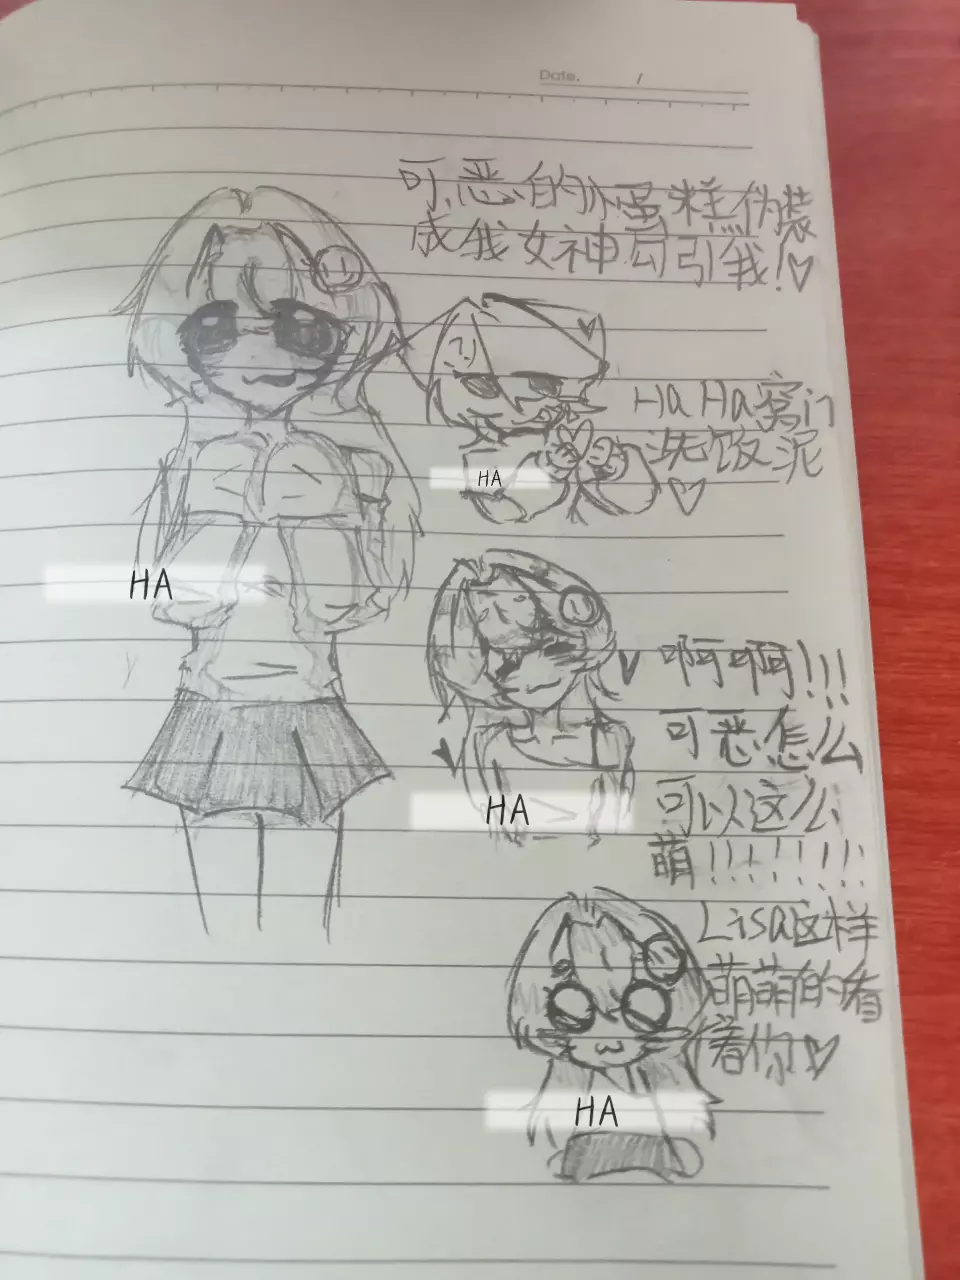 Date. /
可恶的小蛋糕伪装
成我女神勾引我!♡
?
HaHa窝们
洗饭泥
♡
HA
HA
啊啊!!!
可恶怎么
HA
可以这么
萌!!!!!!!
Lisa这样
萌萌的看
着你♡
HA